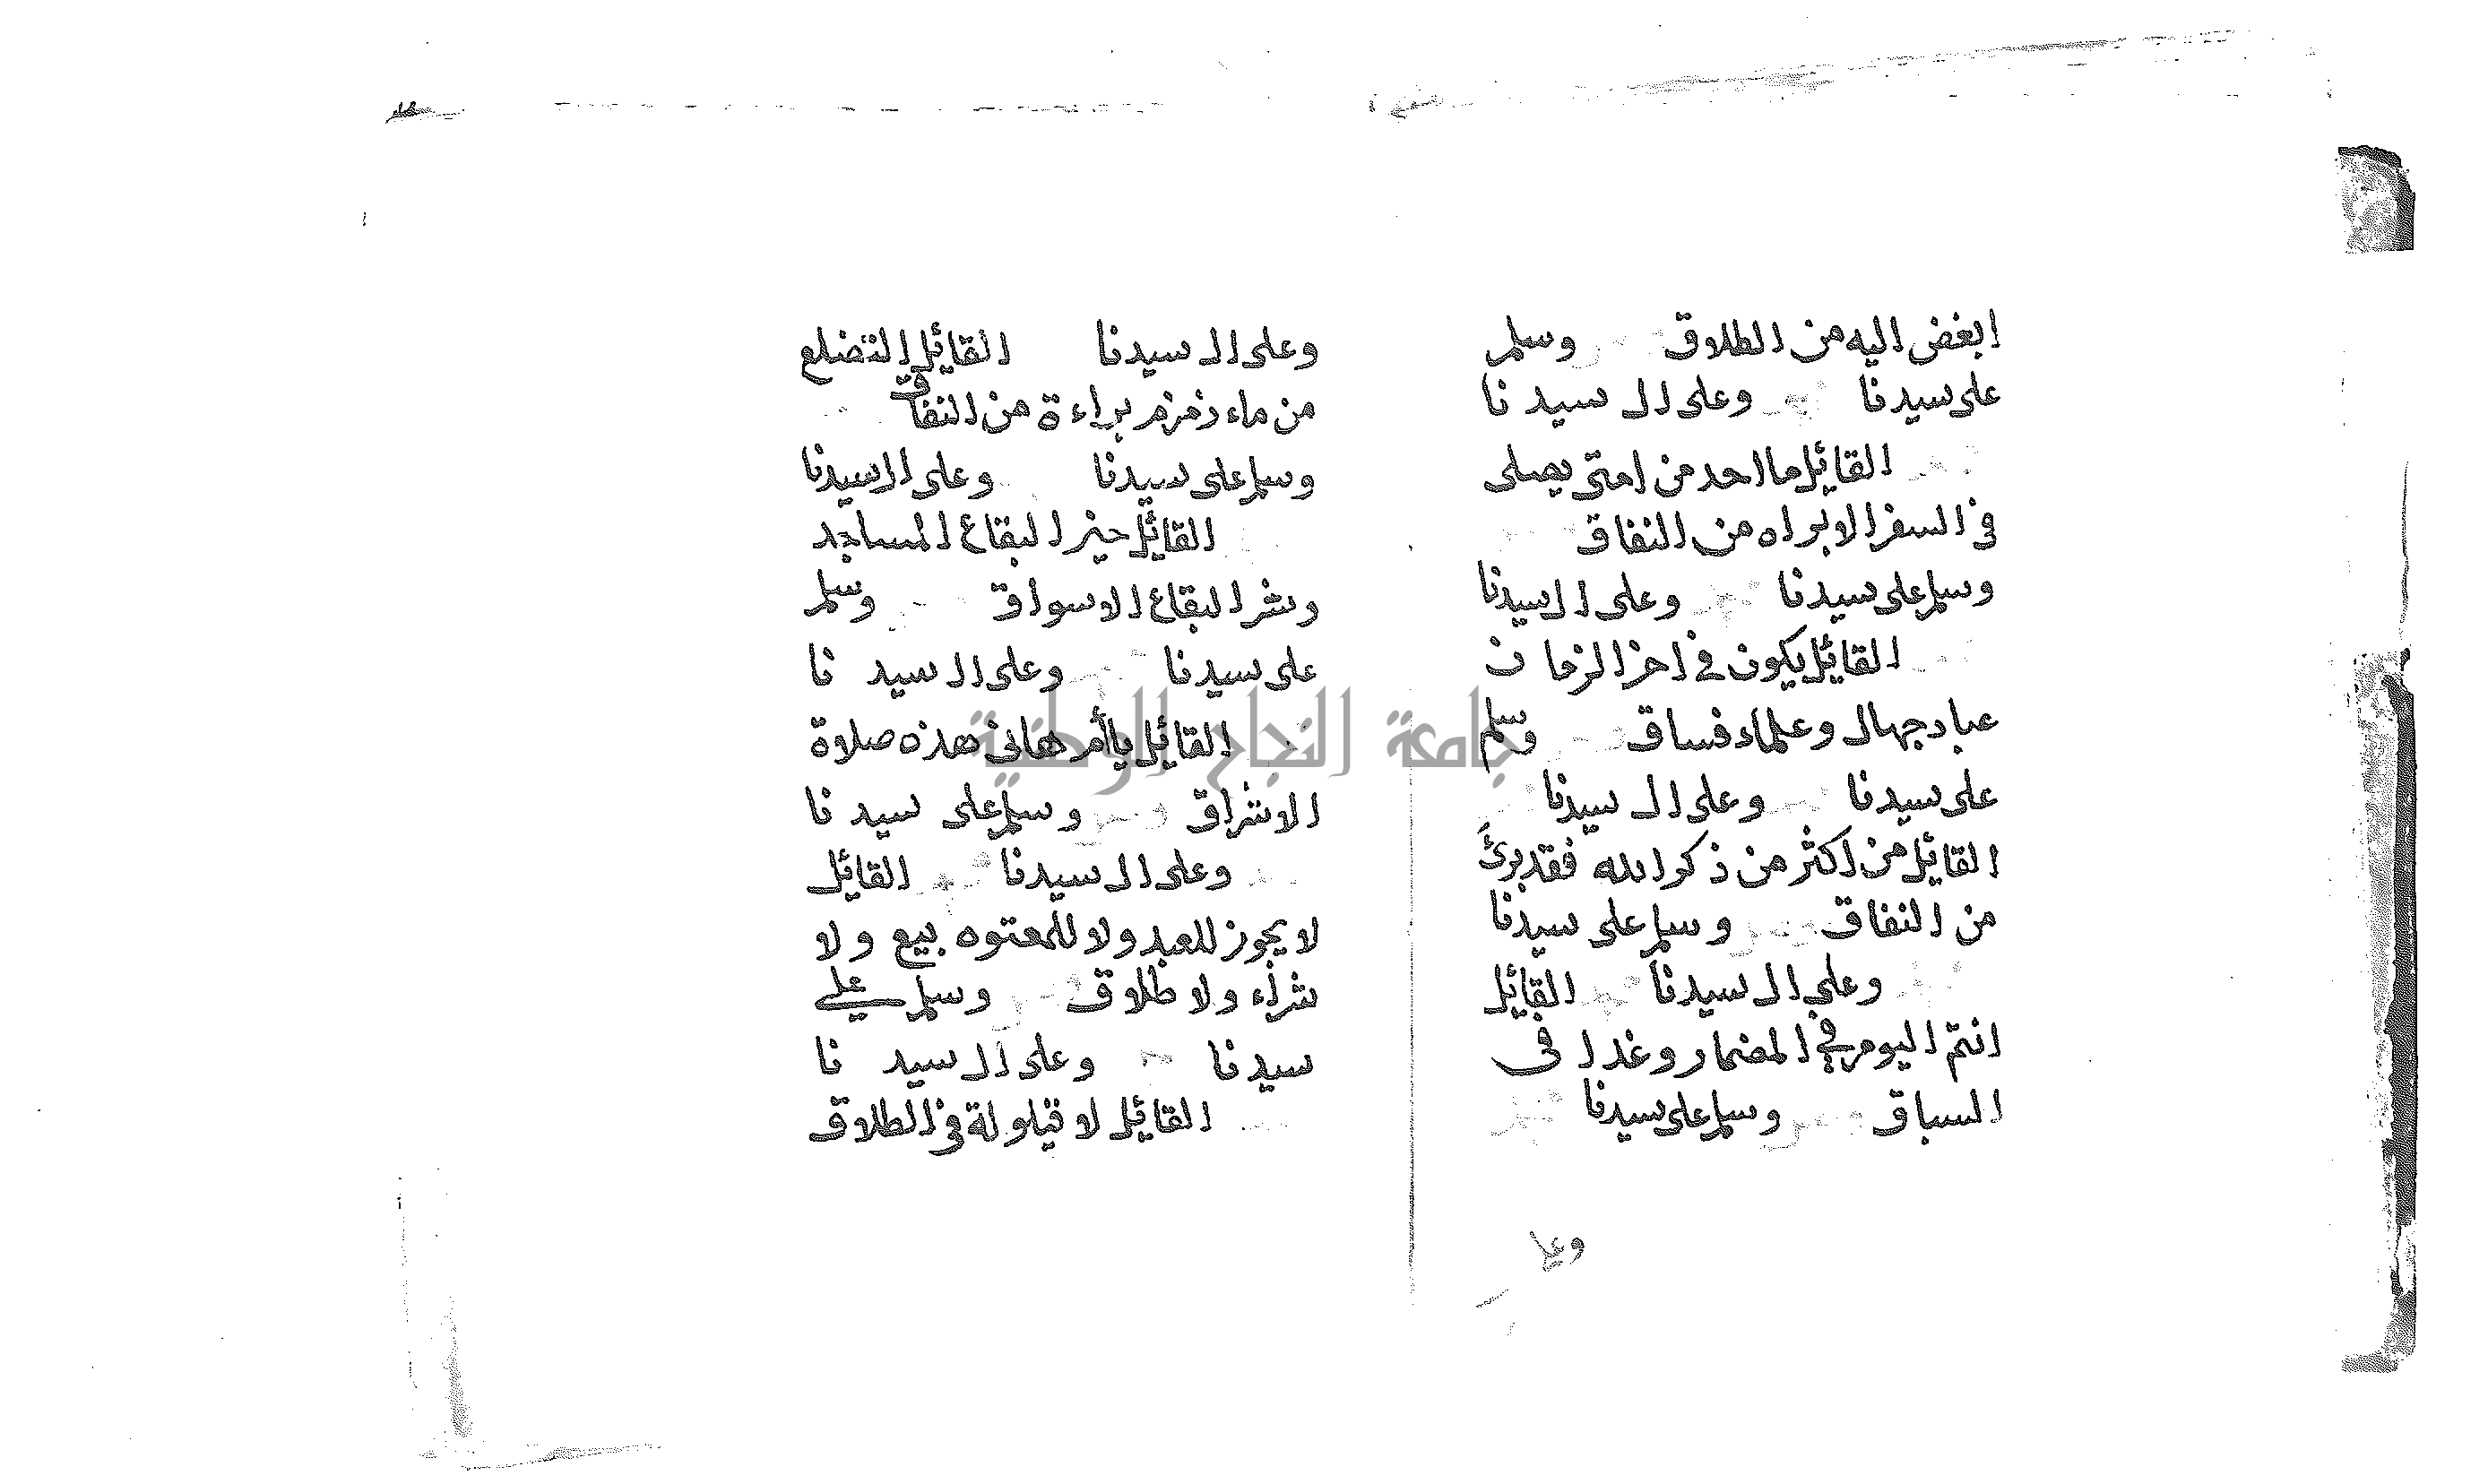 ابغض اليه من الطلاق وسلم
على سيدنا وعلى ال سيدنا
القائل ما احد من امتى يصلى
فى السفر الا براه من النفاق
وسلم على سيدنا وعلى ال سيدنا
القائل يكون فى اخر الزمان
عباد جهال وعلماء فساق وسلم
على سيدنا وعلى ال سيدنا
القائل من اكثر من ذكر الله فقد برئ
من النفاق وسلم على سيدنا
وعلى ال سيدنا القائل
انتم اليوم في المضمار وغدا فى
السباق وسلم على سيدنا
وعلى
وعلى ال سيدنا القائل التضلع
من ماء زمزم براءة من النفاق
وسلم على سيدنا وعلى ال سيدنا
القائل خير البقاع المساجد
وشر البقاع الاسواق وسلم
على سيدنا وعلى ال سيدنا
القائل يا أم هانى هذه صلاة
الاشراق وسلم على سيدنا
وعلى ال سيدنا القائل
لا يجوز للعبد ولا للمعتوه بيع ولا
شراء ولا طلاق وسلم على
سيدنا وعلى ال سيدنا
القائل لا قيلولة فى الطلاق
جامعة النجاح الوطنية